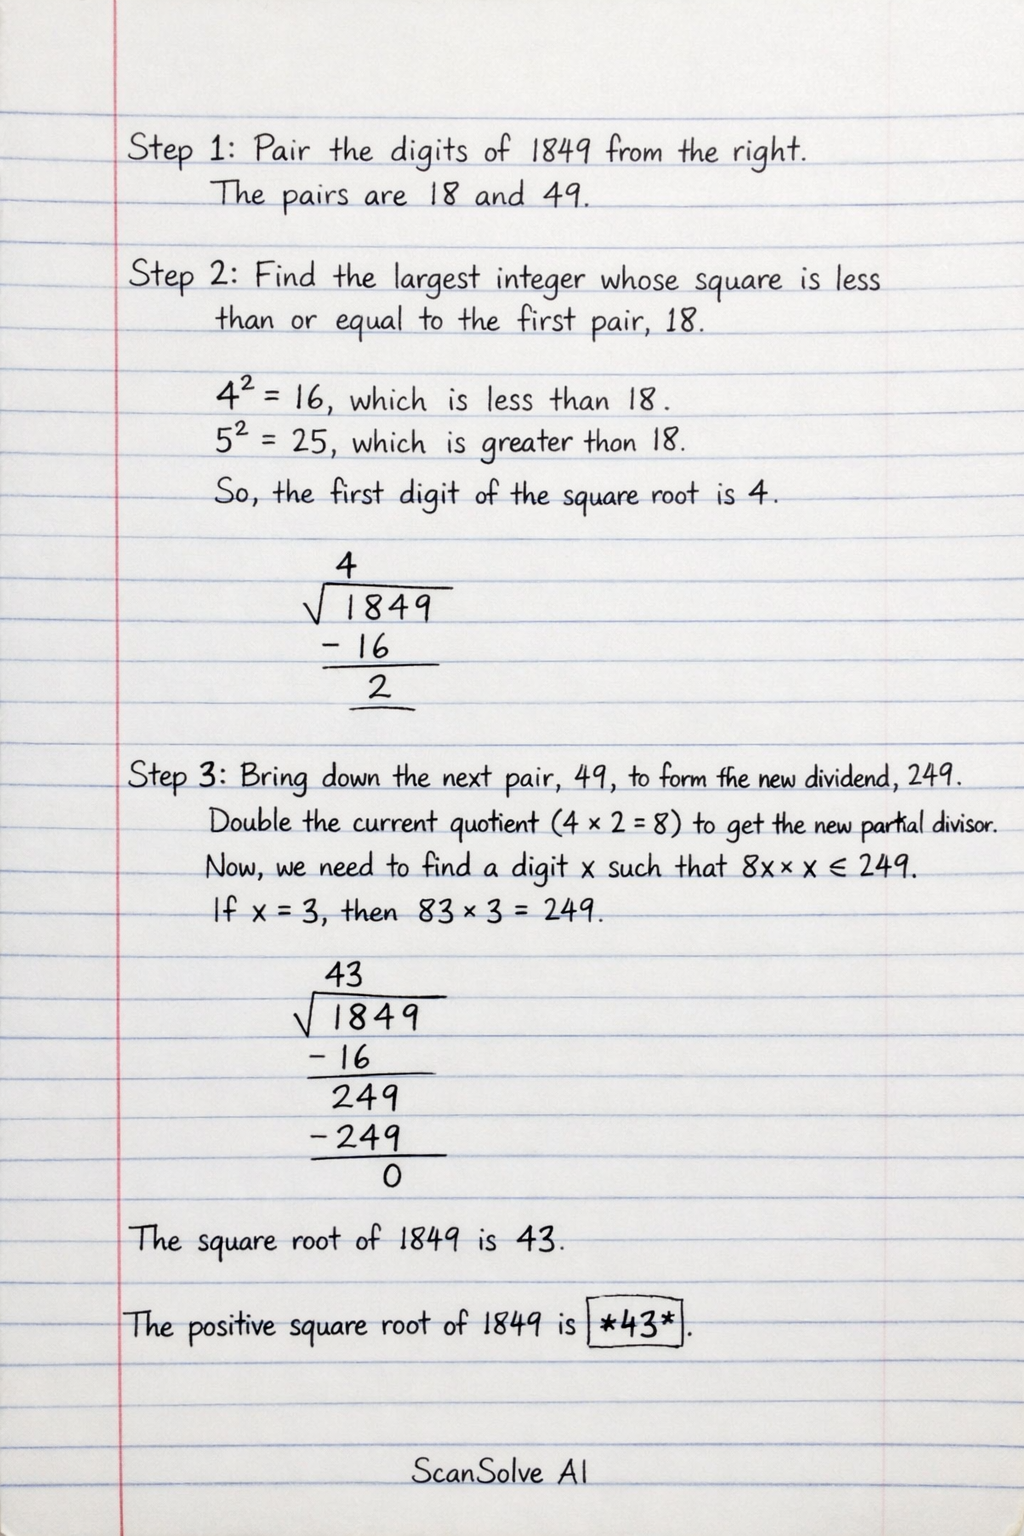 Step 1: Pair the digits of 1849 from the right.
The pairs are 18 and 49.
Step 2: Find the largest integer whose square is less
than or equal to the first pair, 18.
4² = 16, which is less than 18.
5² = 25, which is greater thon 18.
So, the first digit of the square root is 4.
4
√1849
- 16
2
Step 3: Bring down the next pair, 49, to form the new dividend, 249.
Double the current quotient (4 × 2 = 8) to get the new partial divisor.
Now, we need to find a digit x such that 8x × x ∈ 249.
If x = 3, then 83 × 3 = 249.
43
√1849
- 16
249
- 249
0
The square root of 1849 is 43.
The positive square root of 1849 is *43*.
ScanSolve AI